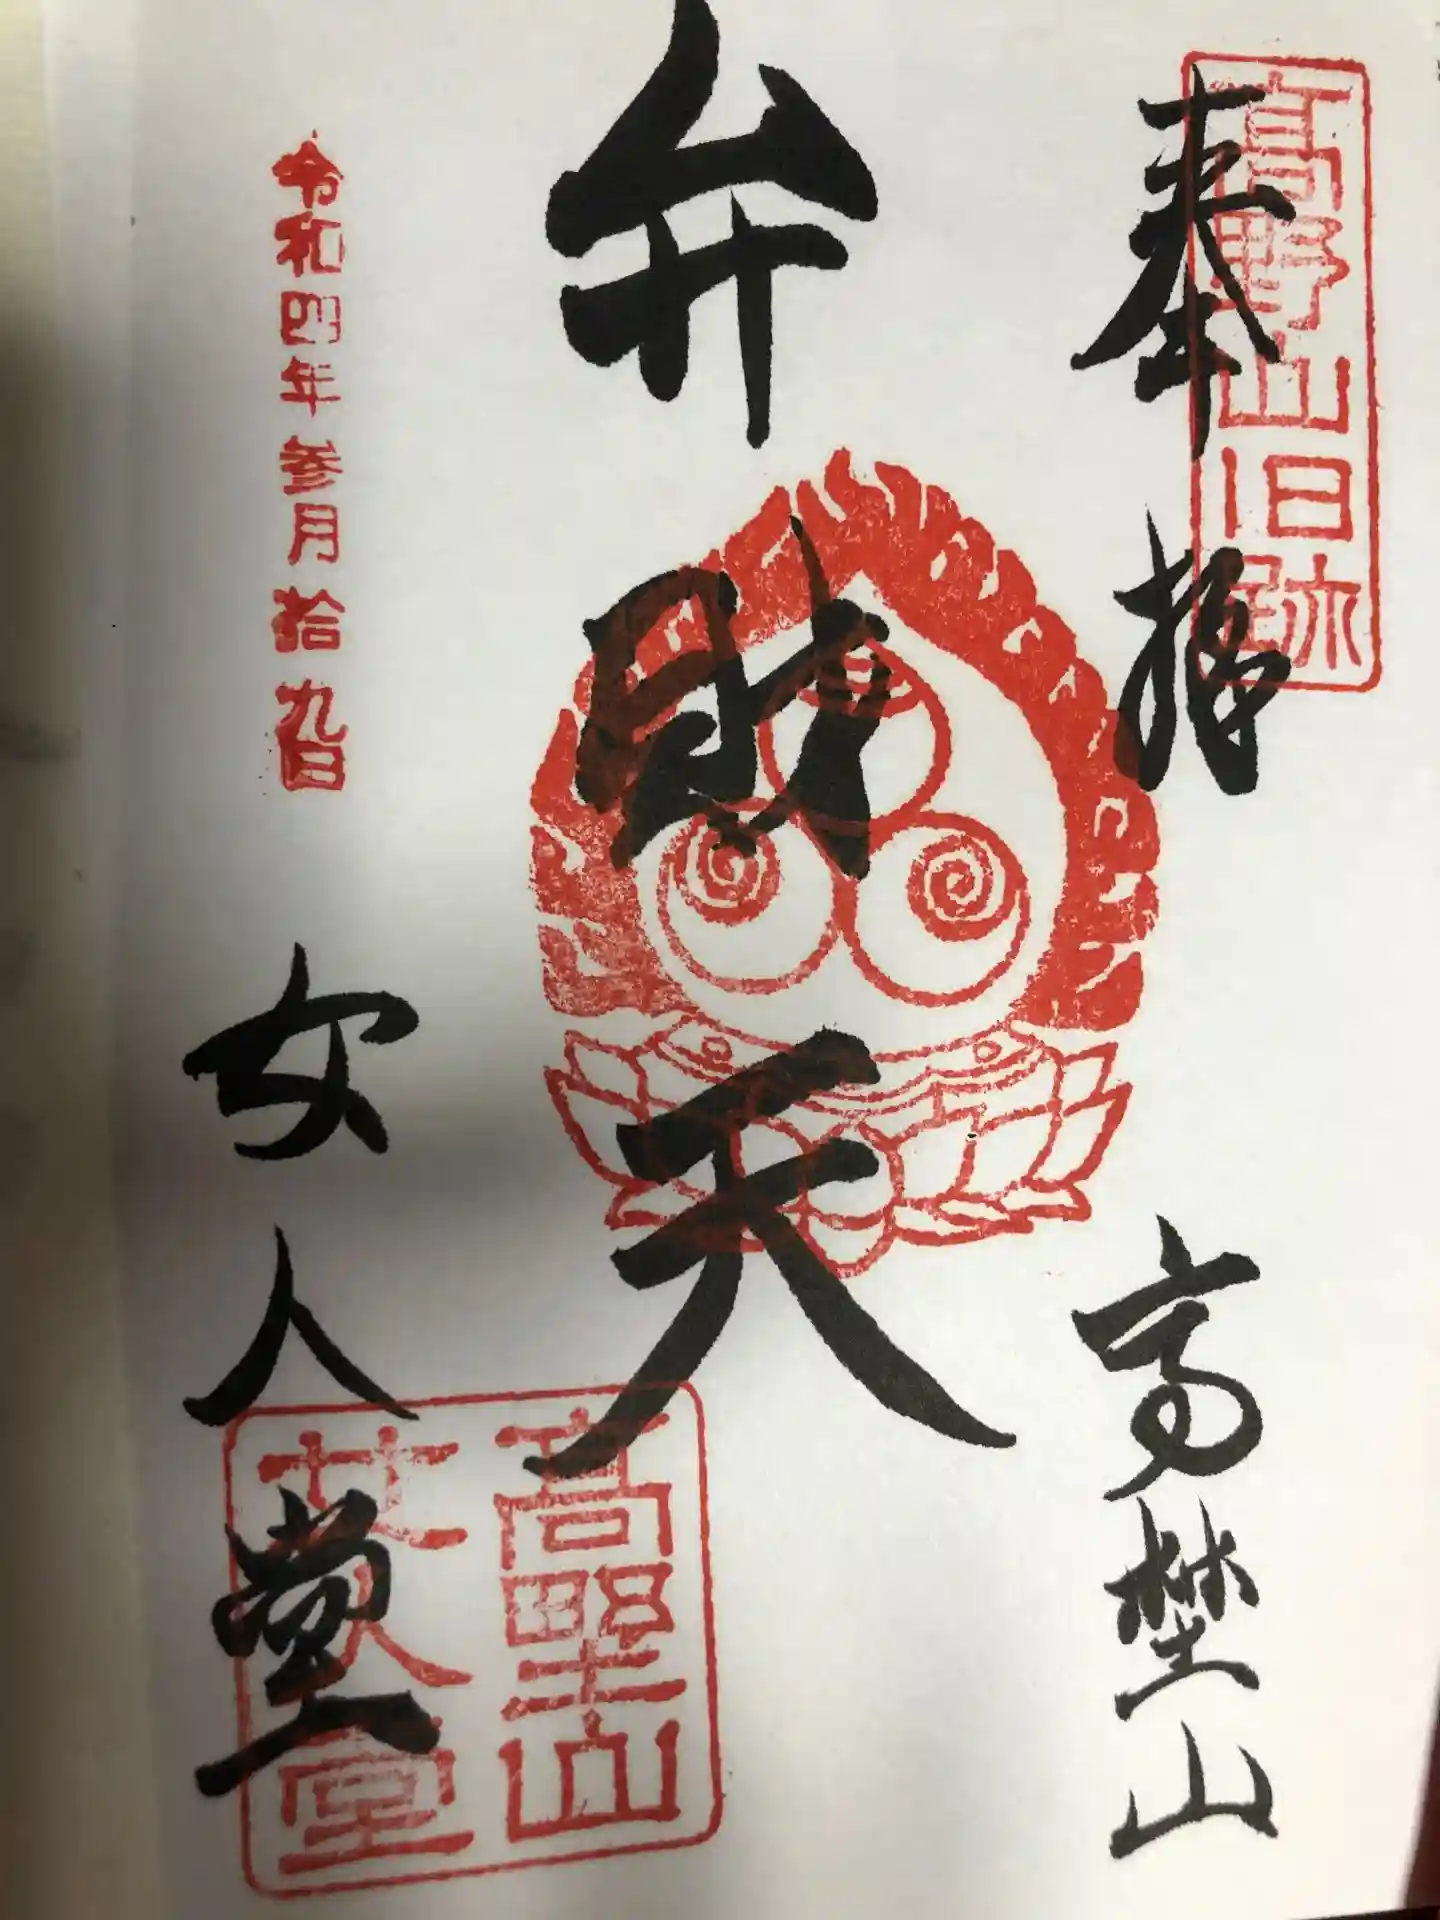 高野山旧跡
奉拝
高埜山
弁財天
令和四年参月拾九日
女人堂
高埜山
女人堂